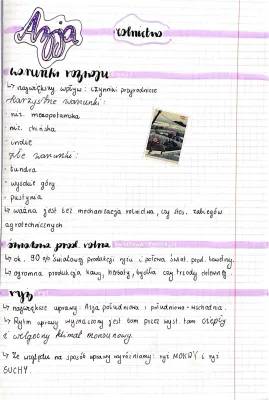 Azja
rolnictwo
warunki rozwoju
↳ największy wpływ: czynniki przyrodnicze
korzystne warunki:
niz. mezopotamska
niz. chińska
indie
złe warunki:
- tundra
- wysokie góry
- pustynia
↳ ważna jest też mechanizacja rolnictwa, czy stos. zabiegów
agrotechnicznych
światowa prod. rolna
↳ ok. 90% światowej produkcji ryżu i połowa świat. prod. bawełny.
↳ ogromna produkcja kawy, herbaty, bydła czy trzody chlewnej
ryż
↳ największe uprawy: Azja południowa i południowo-wschodnia.
↳ Rytm uprawy wyznaczony jest tam przez wyst. tam ciepły
i wilgotny klimat monsunowy.
↳ Ze względu na sposób uprawy wyróżniamy: ryż MOKRY i ryż
SUCHY.